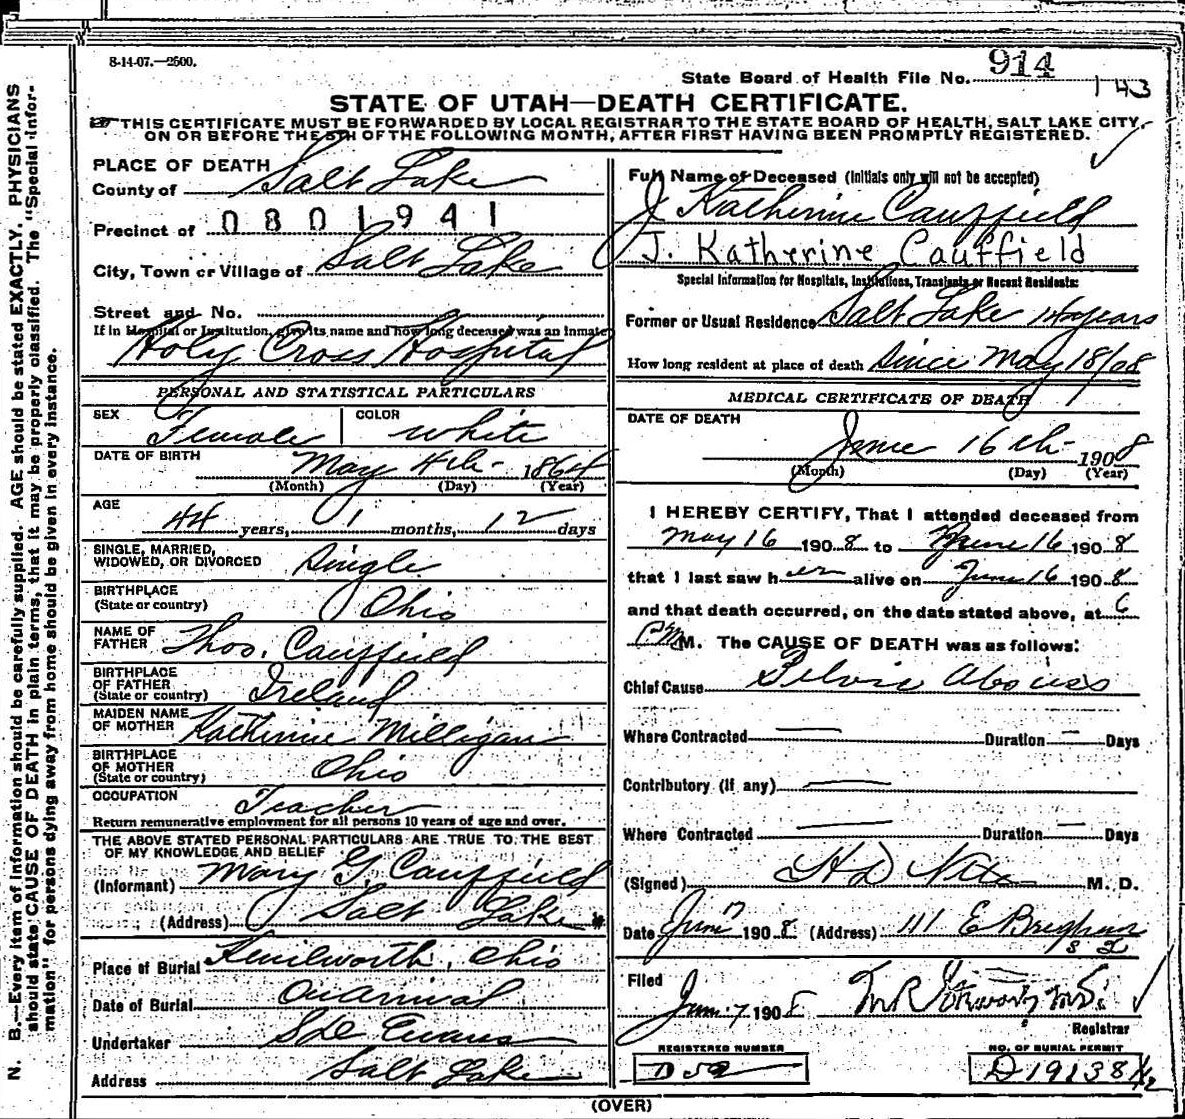 8-14-07.—2500.
State Board of Health File No. 914
143
STATE OF UTAH—DEATH CERTIFICATE.
THIS CERTIFICATE MUST BE FORWARDED BY LOCAL REGISTRAR TO THE STATE BOARD OF HEALTH, SALT LAKE CITY,
ON OR BEFORE THE 5TH OF THE FOLLOWING MONTH, AFTER FIRST HAVING BEEN PROMPTLY REGISTERED.
PLACE OF DEATH
County of Salt Lake
Precinct of 0801941
City, Town or Village of Salt Lake
Street and No.
If in Hospital or Institution, give its name and how long deceased was an inmate
Holy Cross Hospital
PERSONAL AND STATISTICAL PARTICULARS
SEX Female COLOR white
DATE OF BIRTH May 4th 1864
(Month) (Day) (Year)
AGE 44 years, 1 months, 12 days
SINGLE, MARRIED,
WIDOWED, OR DIVORCED Single
BIRTHPLACE
(State or country) Ohio
NAME OF
FATHER Thos. Cauffield
BIRTHPLACE
OF FATHER
(State or country) Ireland
MAIDEN NAME
OF MOTHER Katherine Milligan
BIRTHPLACE
OF MOTHER
(State or country) Ohio
OCCUPATION Teacher
Return remunerative employment for all persons 10 years of age and over.
THE ABOVE STATED PERSONAL PARTICULARS ARE TRUE TO THE BEST
OF MY KNOWLEDGE AND BELIEF
(Informant) Mary G. Cauffield
(Address) Salt Lake
Place of Burial Kenilworth, Ohio
Date of Burial On arrival
Undertaker Evans
Address Salt Lake
Full Name of Deceased (Initials only will not be accepted)
J Katherine Cauffield
J. Katherine Cauffield
Special Information for Hospitals, Institutions, Transients or Recent Residents:
Former or Usual Residence Salt Lake years
How long resident at place of death Since May 18/08
MEDICAL CERTIFICATE OF DEATH
DATE OF DEATH
June 16th 1908
(Month) (Day) (Year)
I HEREBY CERTIFY, That I attended deceased from
May 16 1908 to June 16 1908
that I last saw her alive on June 16 1908
and that death occurred, on the date stated above, at 6
P M. The CAUSE OF DEATH was as follows:
Chief Cause Pelvic Abscess
Where Contracted — Duration — Days
Contributory (if any) —
Where Contracted — Duration — Days
(Signed) H D M. D.
Date June 17 1908 (Address) 111 E
Filed
June 17 1908
Registrar
REGISTERED NUMBER
NO. OF BURIAL PERMIT
D 19138 1/2
(OVER)
N. B.—Every item of information should be carefully supplied. AGE should be stated EXACTLY. PHYSICIANS
should state CAUSE OF DEATH in plain terms, that it may be properly classified. The "Special Infor-
mation" for persons dying away from home should be given in every instance.